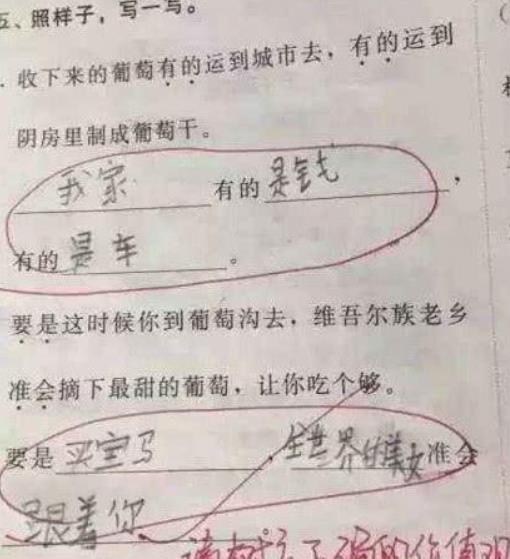 五、照样子，写一写。
收下来的葡萄有的运到城市去，有的运到
阴房里制成葡萄干。
我家有的是钱，
有的是车。
要是这时候你到葡萄沟去，维吾尔族老乡
准会摘下最甜的葡萄，让你吃个够。
要是买宝马，全世界的美女准会
跟着你